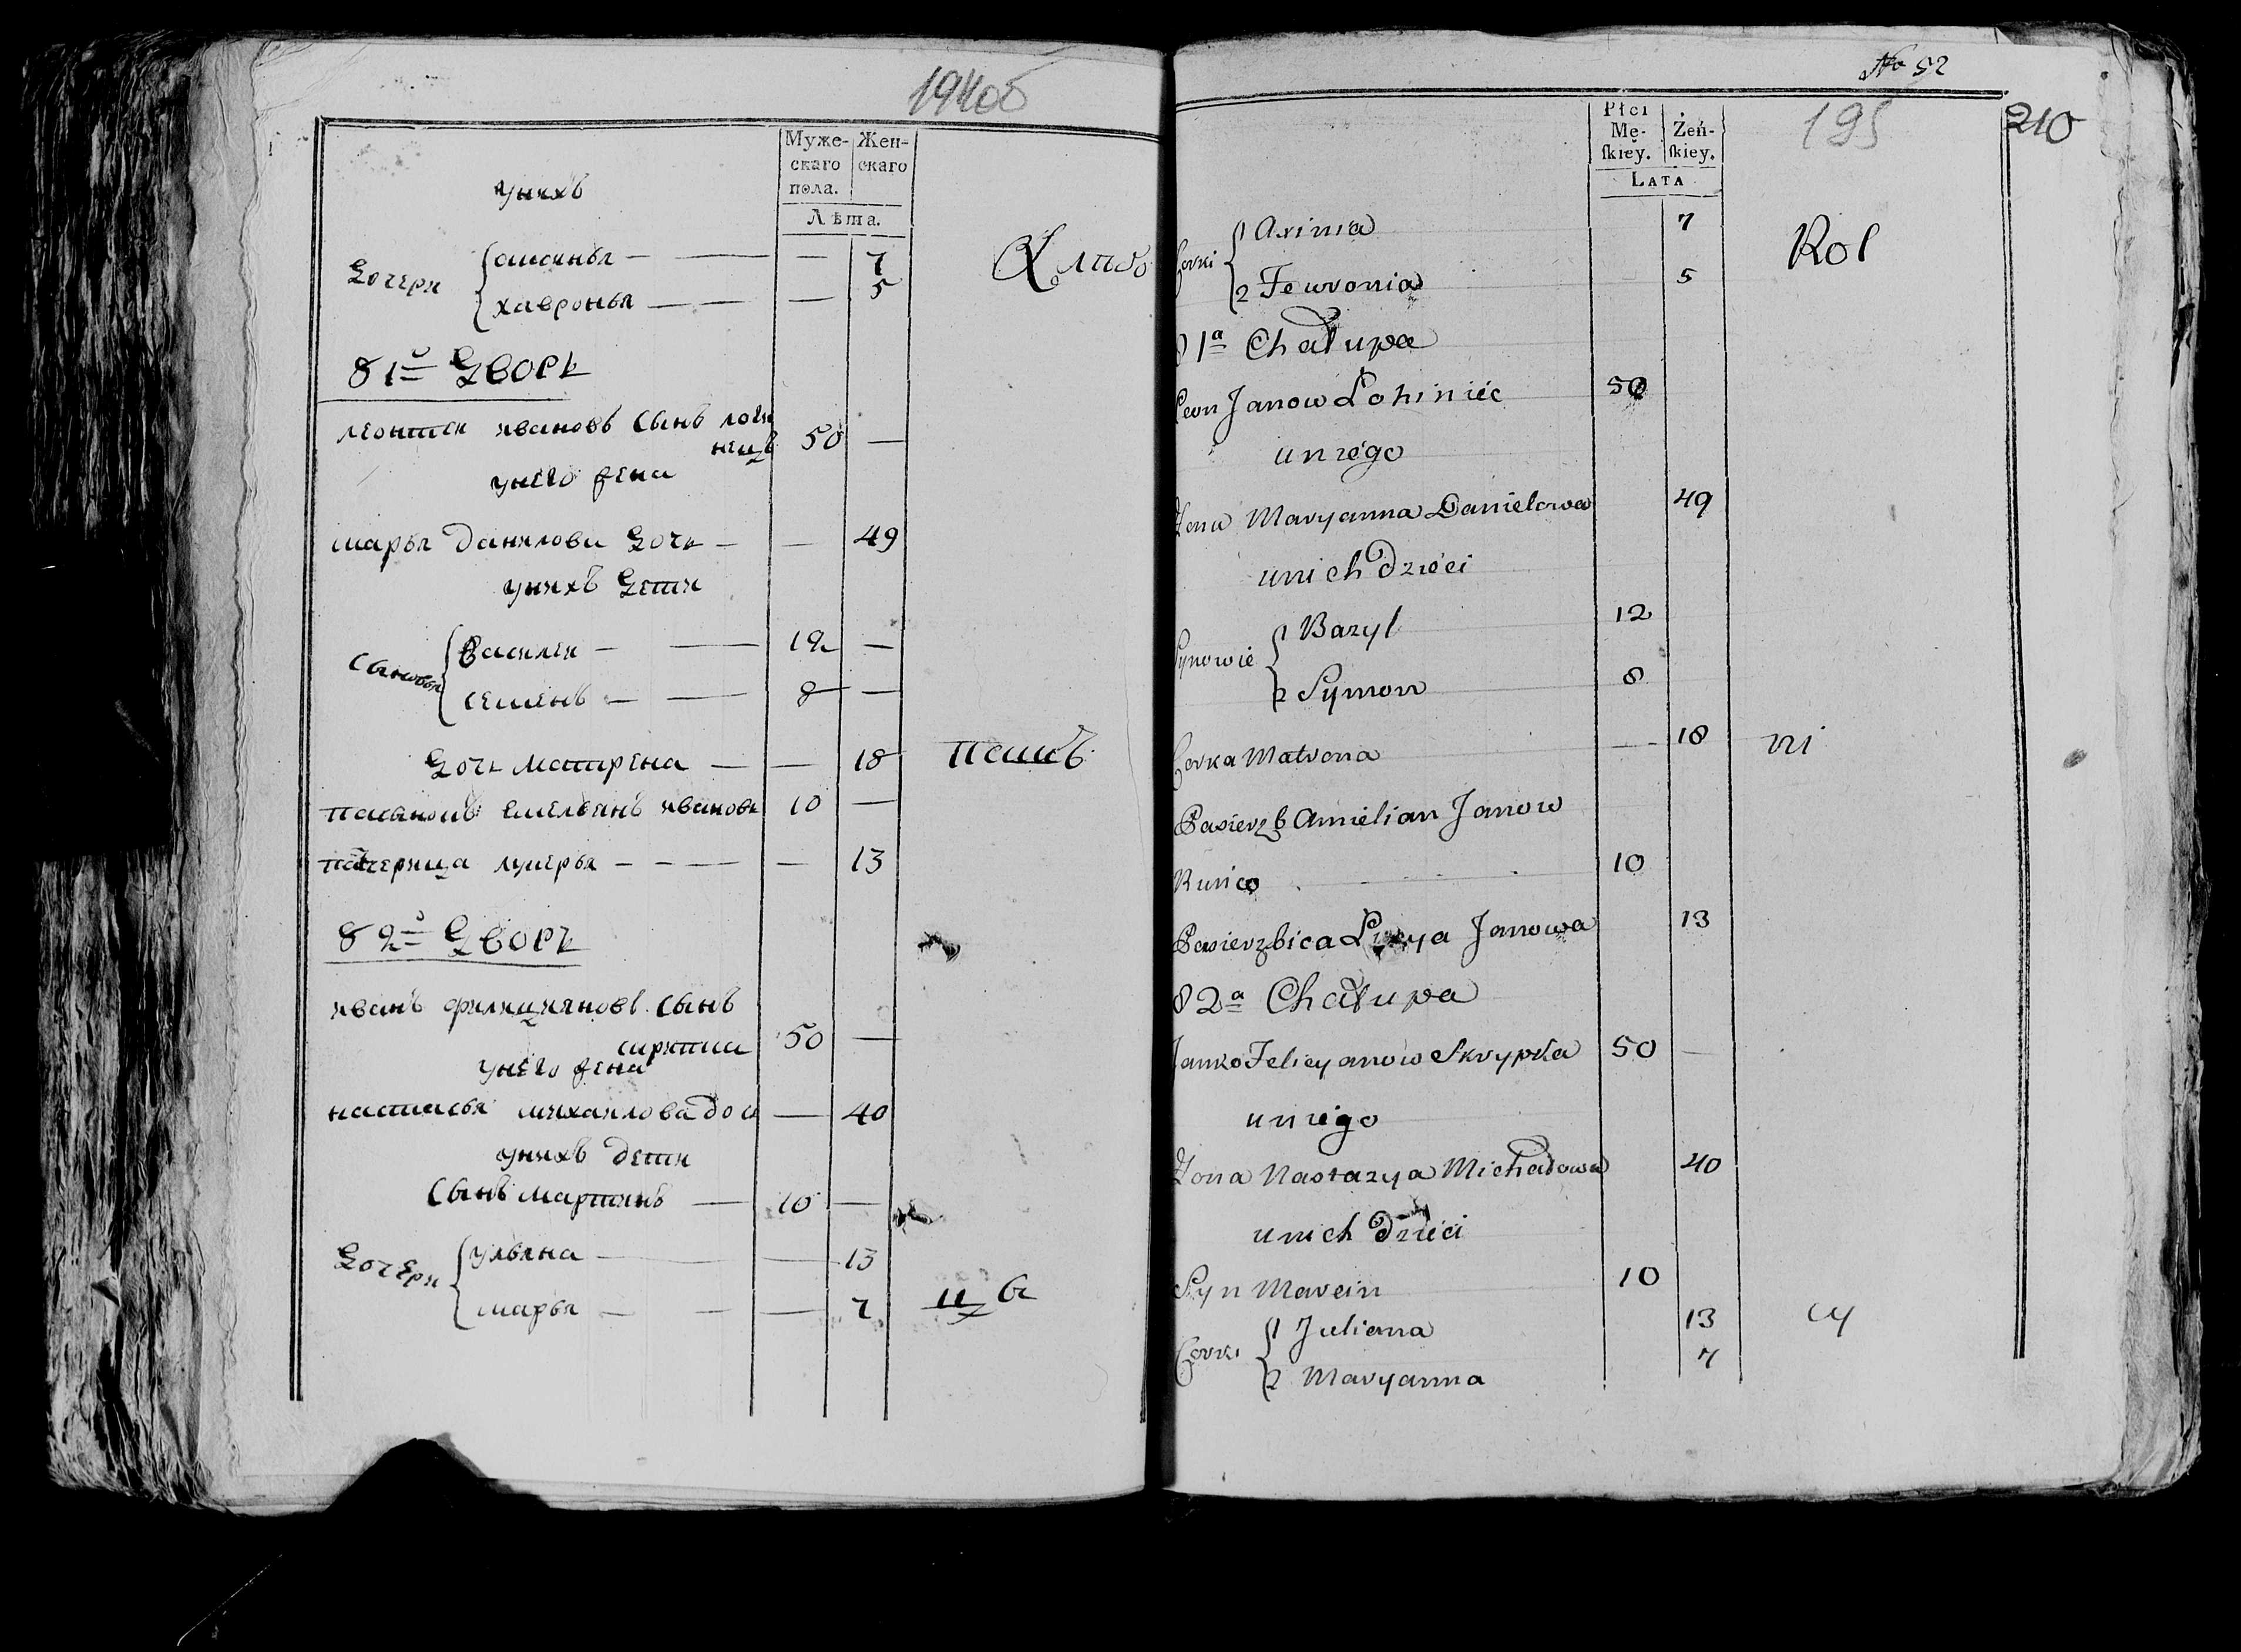 194об
Муже-
скаго
пола.
Жен-
скаго
Лѣта.
унихъ
дочери
оксинья — — — 7
хавронья — — — 5
81й дворъ
леонтей ивановъ сынъ логи
нецъ 50 —
унего жена
марья данилова дочь — — 49
унихъ дети
сыновья
василей — — 12 —
семенъ — — 8 —
дочь матрена — — 18
пасынокъ емельянъ ивановъ 10 —
падчерица лукерья — — — — 13
82й дворъ
иванъ филициановъ сынъ
скрипка 50 —
унего жена
настасья михайлова доч — 40
унихъ дети
сынъ мартинъ — 10 —
дочери
ульяна — — 13
марья — — — 7
пашъ
No 52
195
210
Płci
Mę-
skiey.
Zeń-
skiey.
LATA
Corki
1 Axinia 7
2 Fewronia 5
Rol
81a Chałupa
Leon Janow Lohiniec 50
u niego
Zona Maryanna Daniełowa 49
u nich Dzieci
Synowie
1 Bazyl 12
2 Symon 8
Corka Matrona — 18
ni
Pasierzb Amielian Janow
Kunico 10
Pasierzbica Janowa 13
82a Chałupa
Janko Felicyanow Skrypka 50 —
u niego
Zona Nastazya Michałowa 40
u nich Dzieci
Syn Marcin 10
Corki
1 Juliana 13
2 Maryanna 7
cy